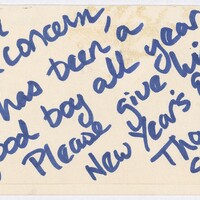 concern,
has been, a
good boy all year
Please give hi
New Year's
Tha